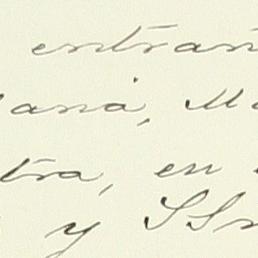 entran
ana, M
tra, en
y SSr